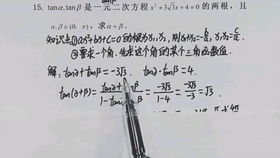 15. tanα,tanβ 是一元二次方程 x²+3√3x+4=0 的两根，且
α,β∈(0,π)，求 α+β
知识点①ax²+bx+c=0的根为x₁,x₂, 则x₁+x₂=-b/a, x₁x₂=c/a
②要求一个角，先求这个角的某个三角函数值.
解: tanα+tanβ=-3√3, tanα·tanβ=4.
tan(α+β)=(tanα+tanβ)/(1-tanαtanβ)=(-3√3)/(1-4)=(-3√3)/(-3)=√3